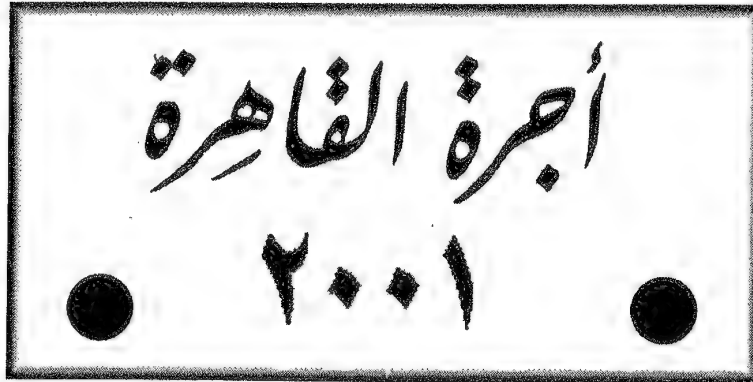 أجرة القاهرة
٢٠٠١